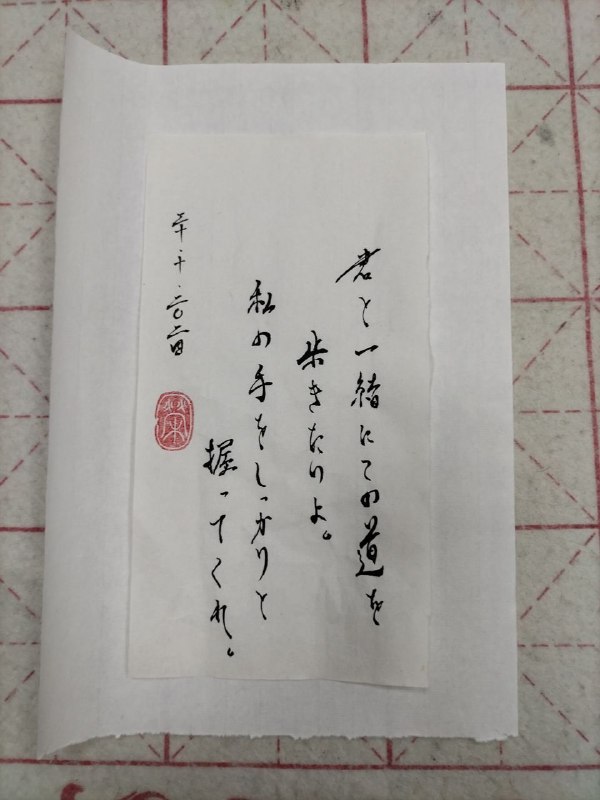 君と一緒にこの道を
歩きたいよ。
私の手をしっかりと
握ってくれ。
十・二〇二四